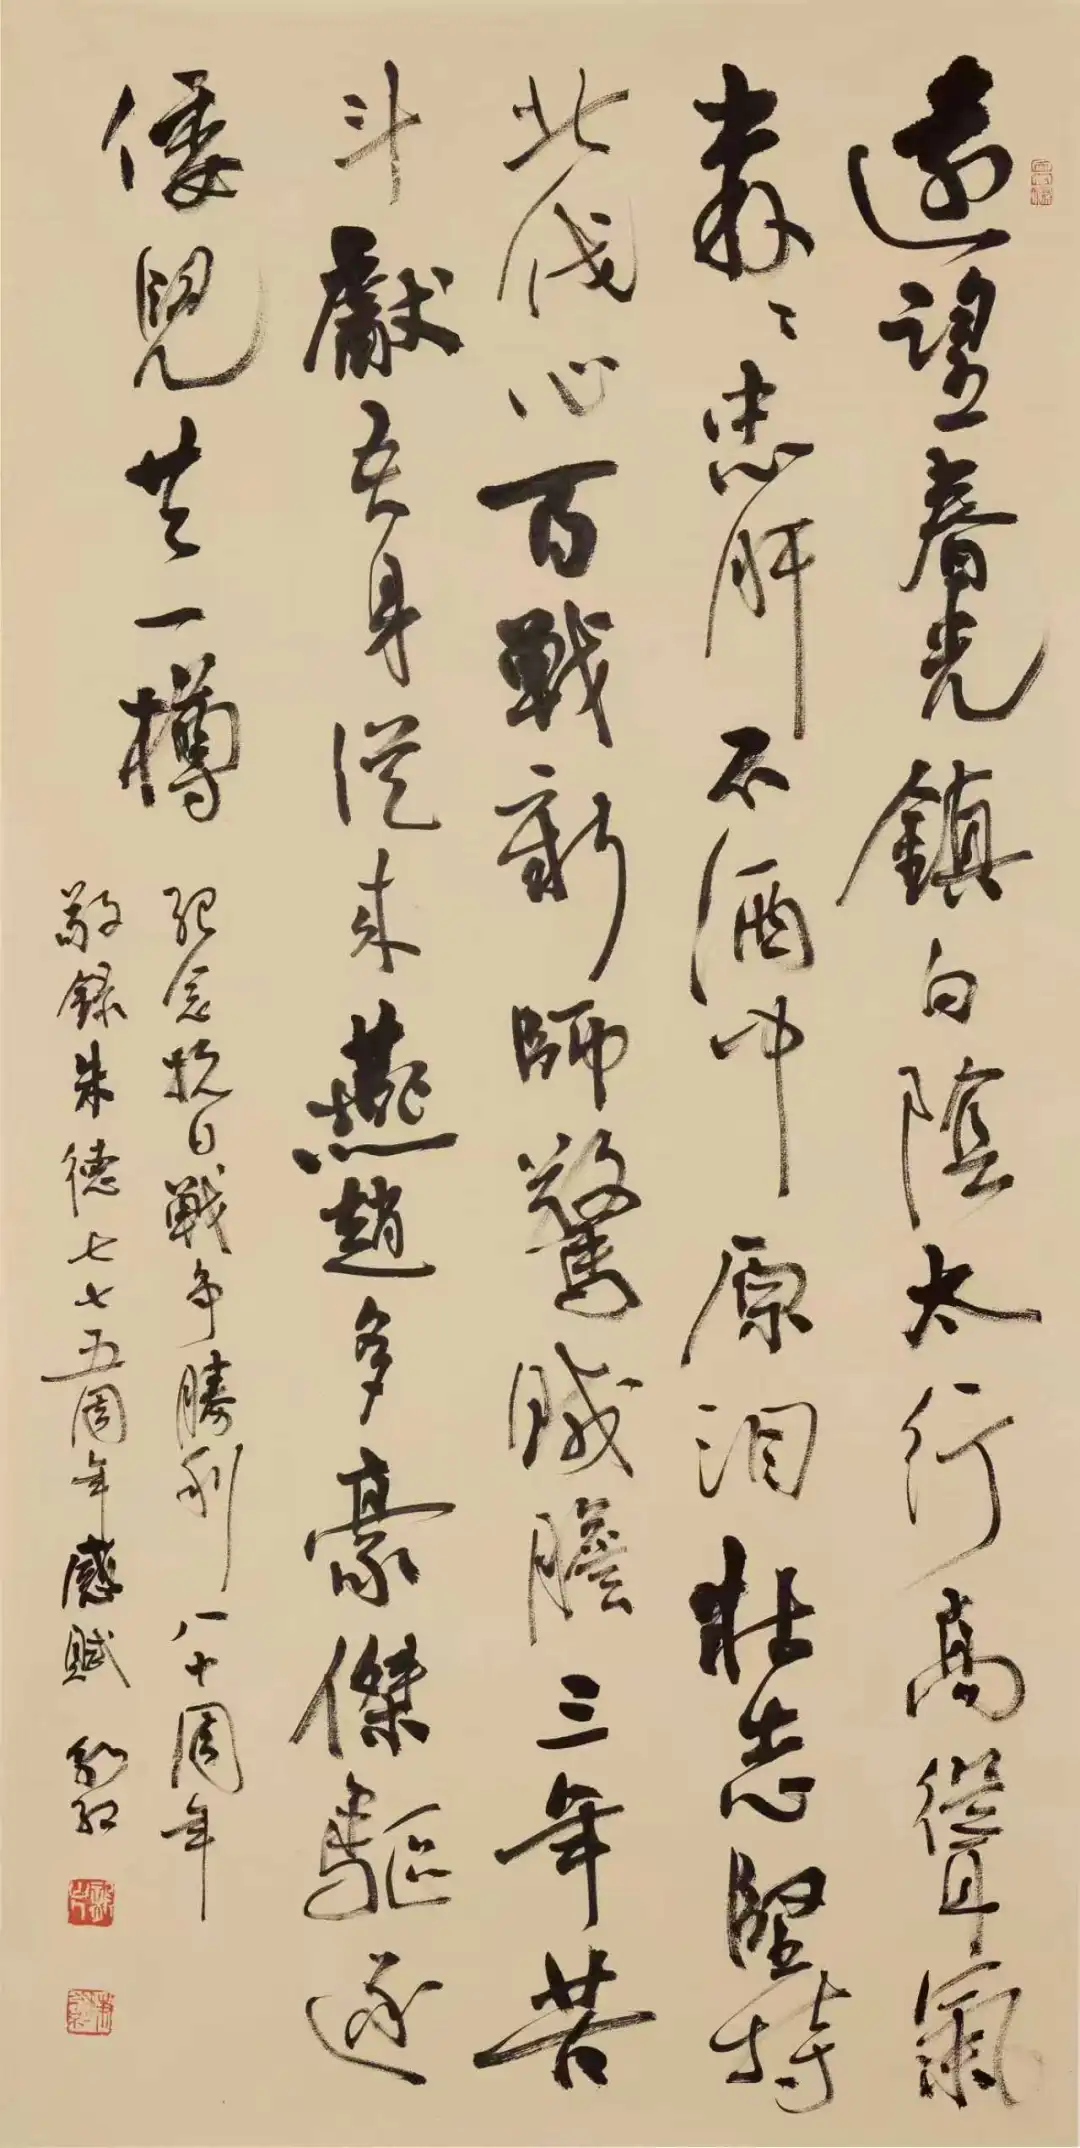 遠望春光鎮白陰太行高聳氣
森〻忠肝不洒中原泪壯志堅持
北伐心百戰新師驚賊膽三年苦
斗獻吾身從來燕趙多豪傑驅逐
倭兒共一樽
紀念抗日戰争勝利八十周年
敬録朱德七七五周年感賦